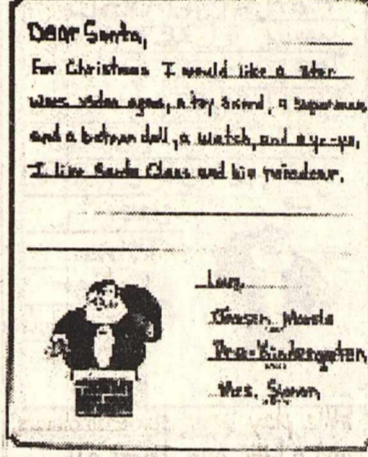 Dear Santa,
For Christmas I would like a Star
Wars video game, a toy sword, a superman
and a batman doll, a watch, and a yo-yo.
I like Santa Claus and his reindeer.
Love,
Pre-Kindergarten
Mrs.